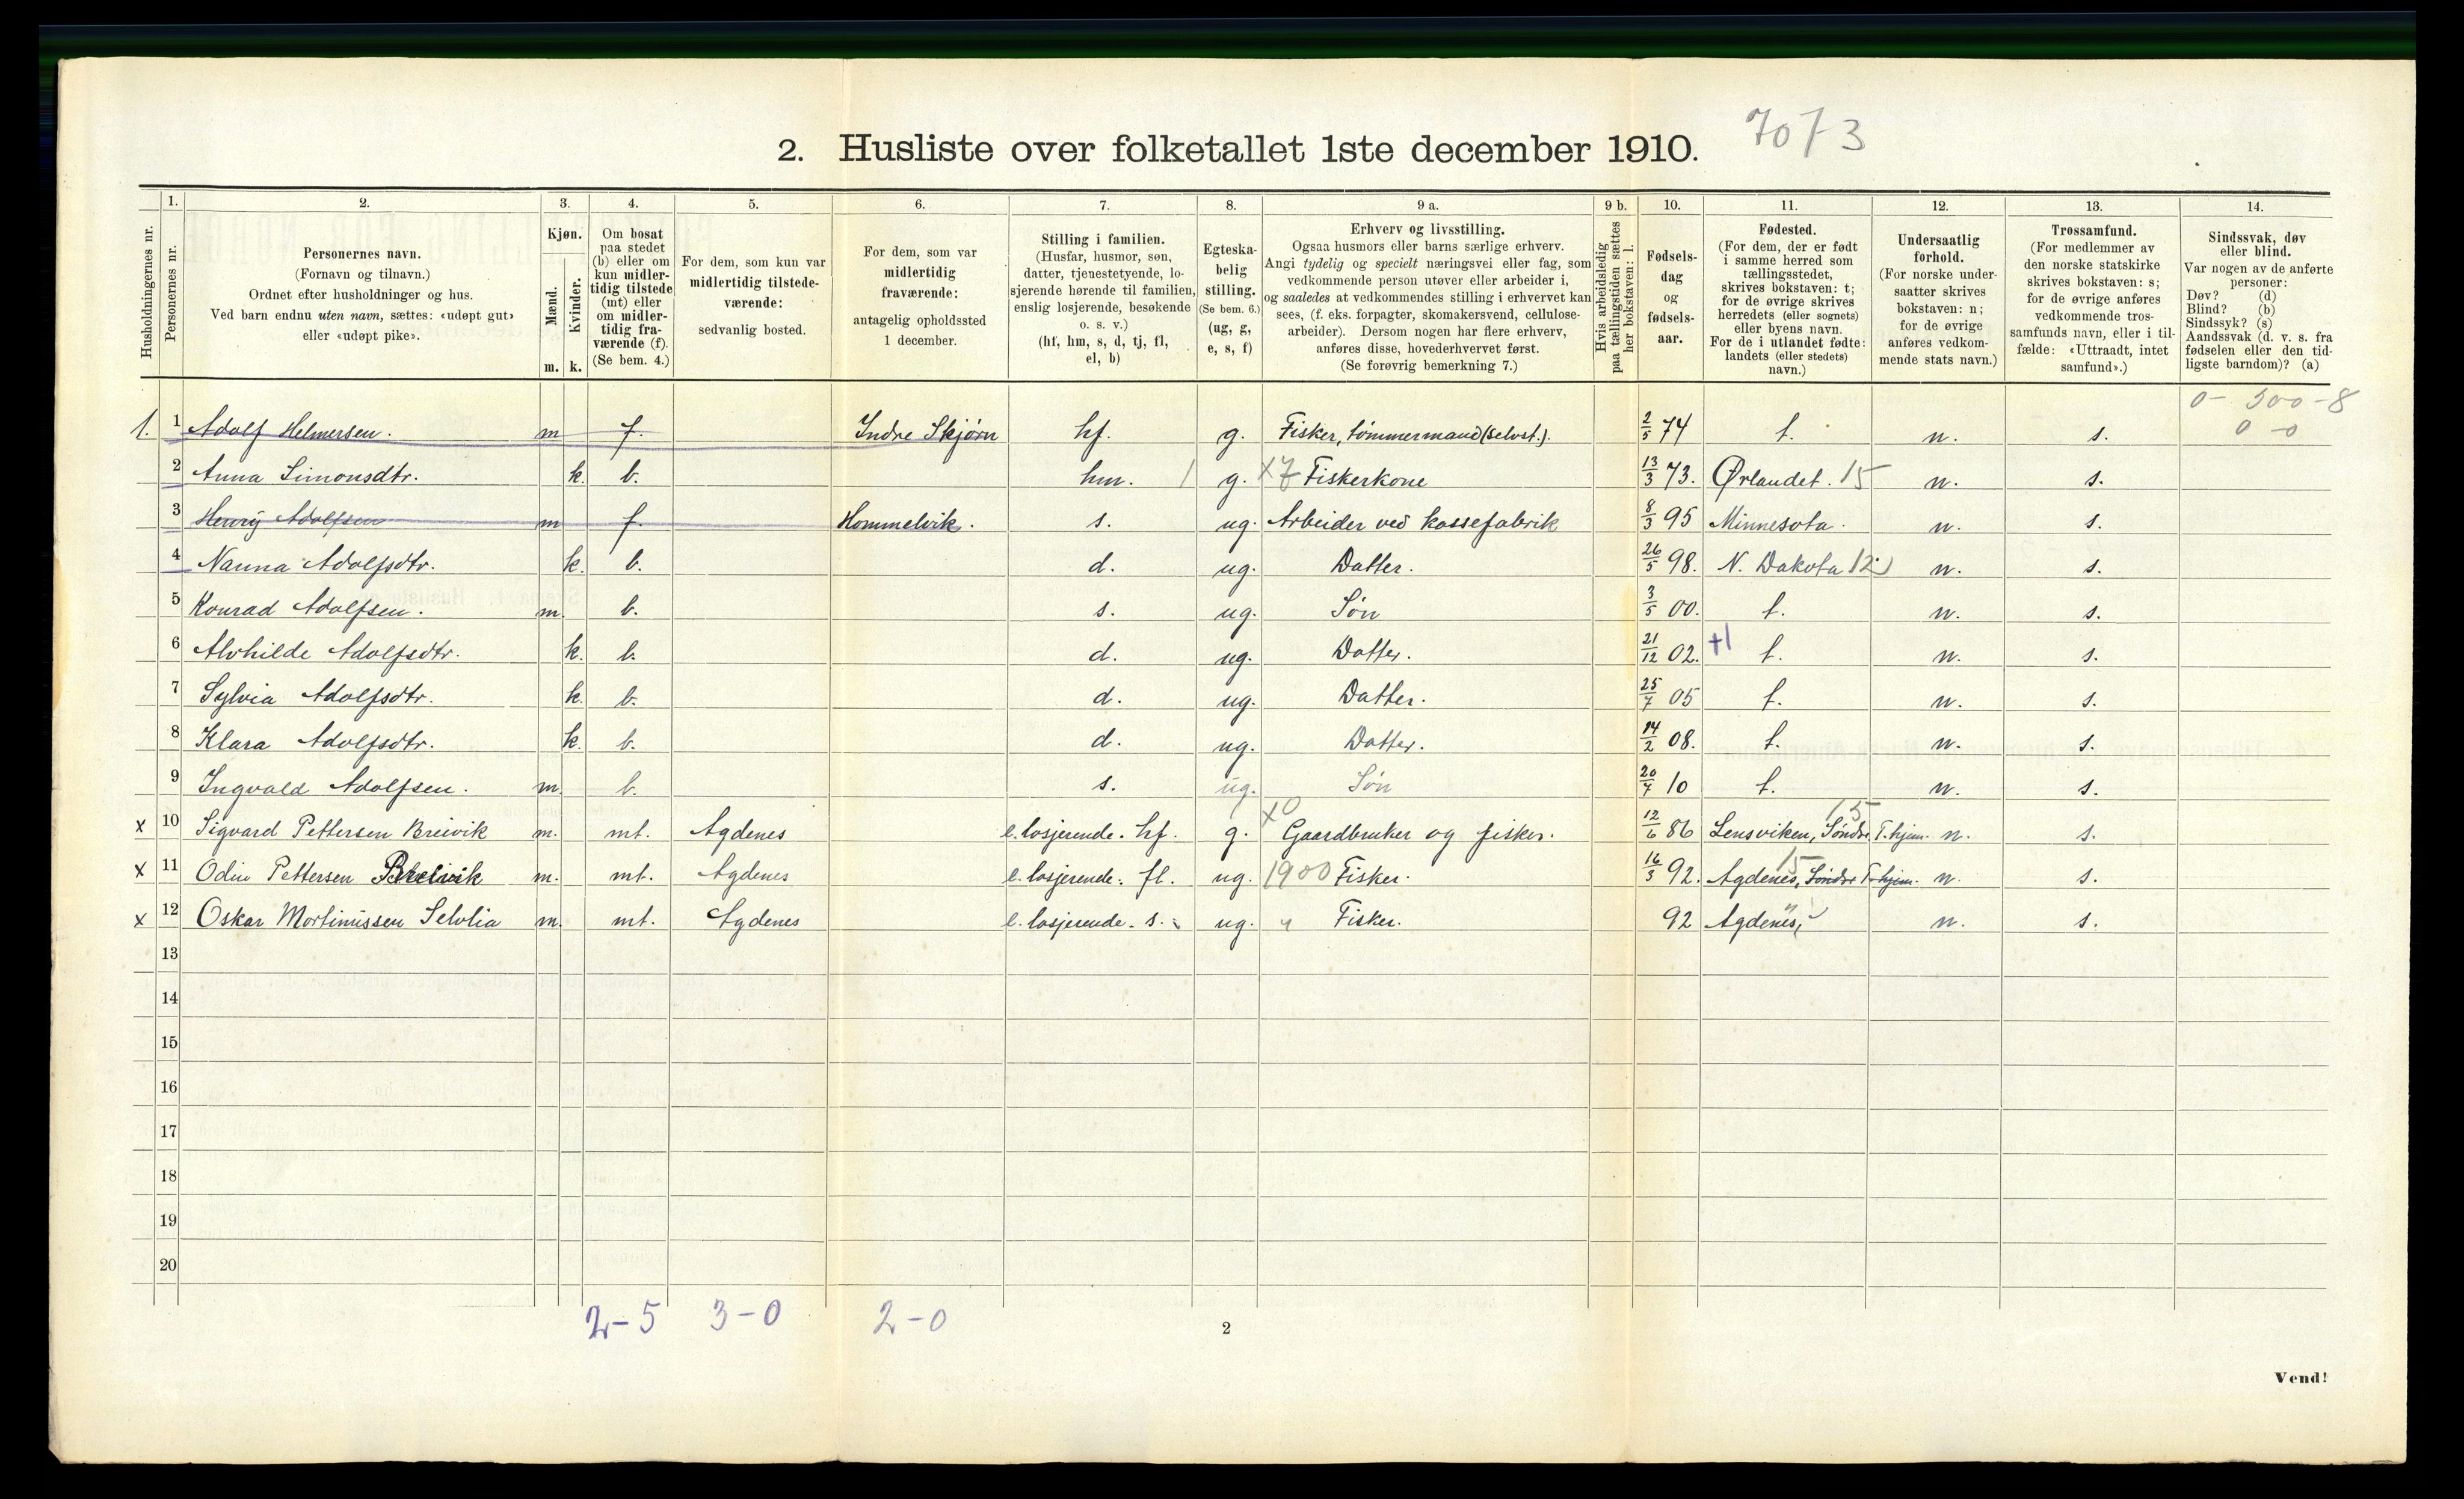 2. Husliste over folketallet 1ste december 1910. 7073
1. 2. 3. 4. 5. 6. 7. 8. 9 a. 9 b. 10. 11. 12. 13. 14.
Husholdningernes nr.
Personernes nr.
Personernes navn.
(Fornavn og tilnavn.)
Ordnet efter husholdninger og hus.
Ved barn endnu uten navn, sættes: «udøpt gut»
eller «udøpt pike».
Kjøn.
Mænd.
Kvinder.
m. k.
Om bosat
paa stedet
(b) eller om
kun midler-
tidig tilstede
(mt) eller
om midler-
tidig fra-
værende (f).
(Se bem. 4.)
For dem, som kun var
midlertidig tilstede-
værende:
sedvanlig bosted.
For dem, som var
midlertidig
fraværende:
antagelig opholdssted
1 december.
Stilling i familien.
(Husfar, husmor, søn,
datter, tjenestetyende, lo-
sjerende hørende til familien,
enslig losjerende, besøkende
o. s. v.)
(hf, hm, s, d, tj, fl,
el, b)
Egteska-
belig
stilling.
(Se bem. 6.)
(ug, g,
e, s, f)
Erhverv og livsstilling.
Ogsaa husmors eller barns særlige erhverv.
Angi tydelig og specielt næringsvei eller fag, som
vedkommende person utøver eller arbeider i,
og saaledes at vedkommendes stilling i erhvervet kan
sees, (f. eks. forpagter, skomakersvend, cellulose-
arbeider). Dersom nogen har flere erhverv,
anføres disse, hovederhvervet først.
(Se forøvrig bemerkning 7.)
Hvis arbeidsledig
paa tællingstiden sættes
her bokstaven: l.
Fødsels-
dag
og
fødsels-
aar.
Fødested.
(For dem, der er født
i samme herred som
tællingsstedet,
skrives bokstaven: t;
for de øvrige skrives
herredets (eller sognets)
eller byens navn.
For de i utlandet fødte:
landets (eller stedets)
navn.)
Undersaatlig
forhold.
(For norske under-
saatter skrives
bokstaven: n;
for de øvrige
anføres vedkom-
mende stats navn.)
Trossamfund.
(For medlemmer av
den norske statskirke
skrives bokstaven: s;
for de øvrige anføres
vedkommende tros-
samfunds navn, eller i til-
fælde: «Uttraadt, intet
samfund».)
Sindssvak, døv
eller blind.
Var nogen av de anførte
personer:
Døv? (d)
Blind? (b)
Sindssyk? (s)
Aandssvak (d. v. s. fra
fødselen eller den tid-
ligste barndom)? (a)
0 - 500 - 8
0 - 0
1. 1 Adolf Helmersen. m f. Indre Skjørn hf. g. Fisker, tømmermand (selvst.). 2/5 74 t. n. s.
2 Anna Simonsdtr. k. b. hm. 1 g. x7 Fiskerkone 13/3 73. Ørlandet. 15 n. s.
3 Henry Adolfsen m f. Hommelvik. s. ug. Arbeider ved kassefabrik 8/3 95 Minnesota. n. s.
4 Nanna Adolfsdtr. k. b. d. ug. Datter. 26/5 98. N. Dakota 12 n. s.
5 Konrad Adolfsen. m. b. s. ug. Søn 3/5 00. t. n. s.
6 Alvhilde Adolfsdtr. k. b. d. ug. Datter. 21/12 02. +1 t. n. s.
7 Sylvia Adolfsdtr. k. b. d. ug. Datter. 25/7 05 t. n. s.
8 Klara Adolfsdtr. k. b. d. ug. Datter. 14/2 08. t. n. s.
9 Ingvald Adolfsen. m. b. s. ug. Søn 20/7 10 t. n. s.
x 10 Sigvard Pettersen Breivik m. mt. Agdenes e. losjerende. hf. g. x0 Gaardbruker og fisker. 12/6 86 Lensviken, Søndre T.hjem. 15 n. s.
x 11 Odin Pettersen Breivik m. mt. Agdenes e. losjerende. fl. ug. 1900 Fisker. 16/3 92. Agdenes, Søndre T.hjem. 15 n. s.
x 12 Oskar Mortinussen Selvlia m. mt. Agdenes e. losjerende. s. ug. " Fisker. 92 Agdenes, " n. s.
13
14
15
16
17
18
19
20
2-5 3-0 2-0
2
Vend!